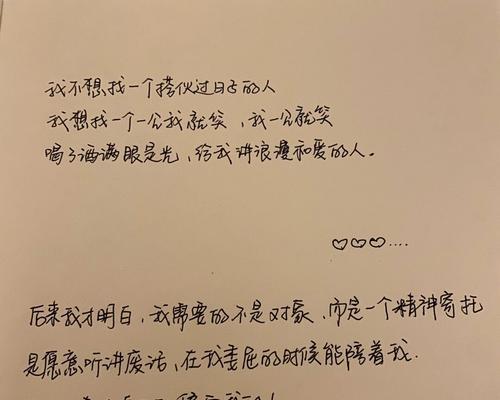 我不想找一个搭伙过日子的人
我想找一个一公我就笑，我一公就笑
喝了酒满眼是光，给我讲浪漫和爱的人。
♡♡♡....
后来我才明白，我需要的不是对象，而是一个精神寄托
是愿意听讲废话，在我委屈的时候能陪着我.